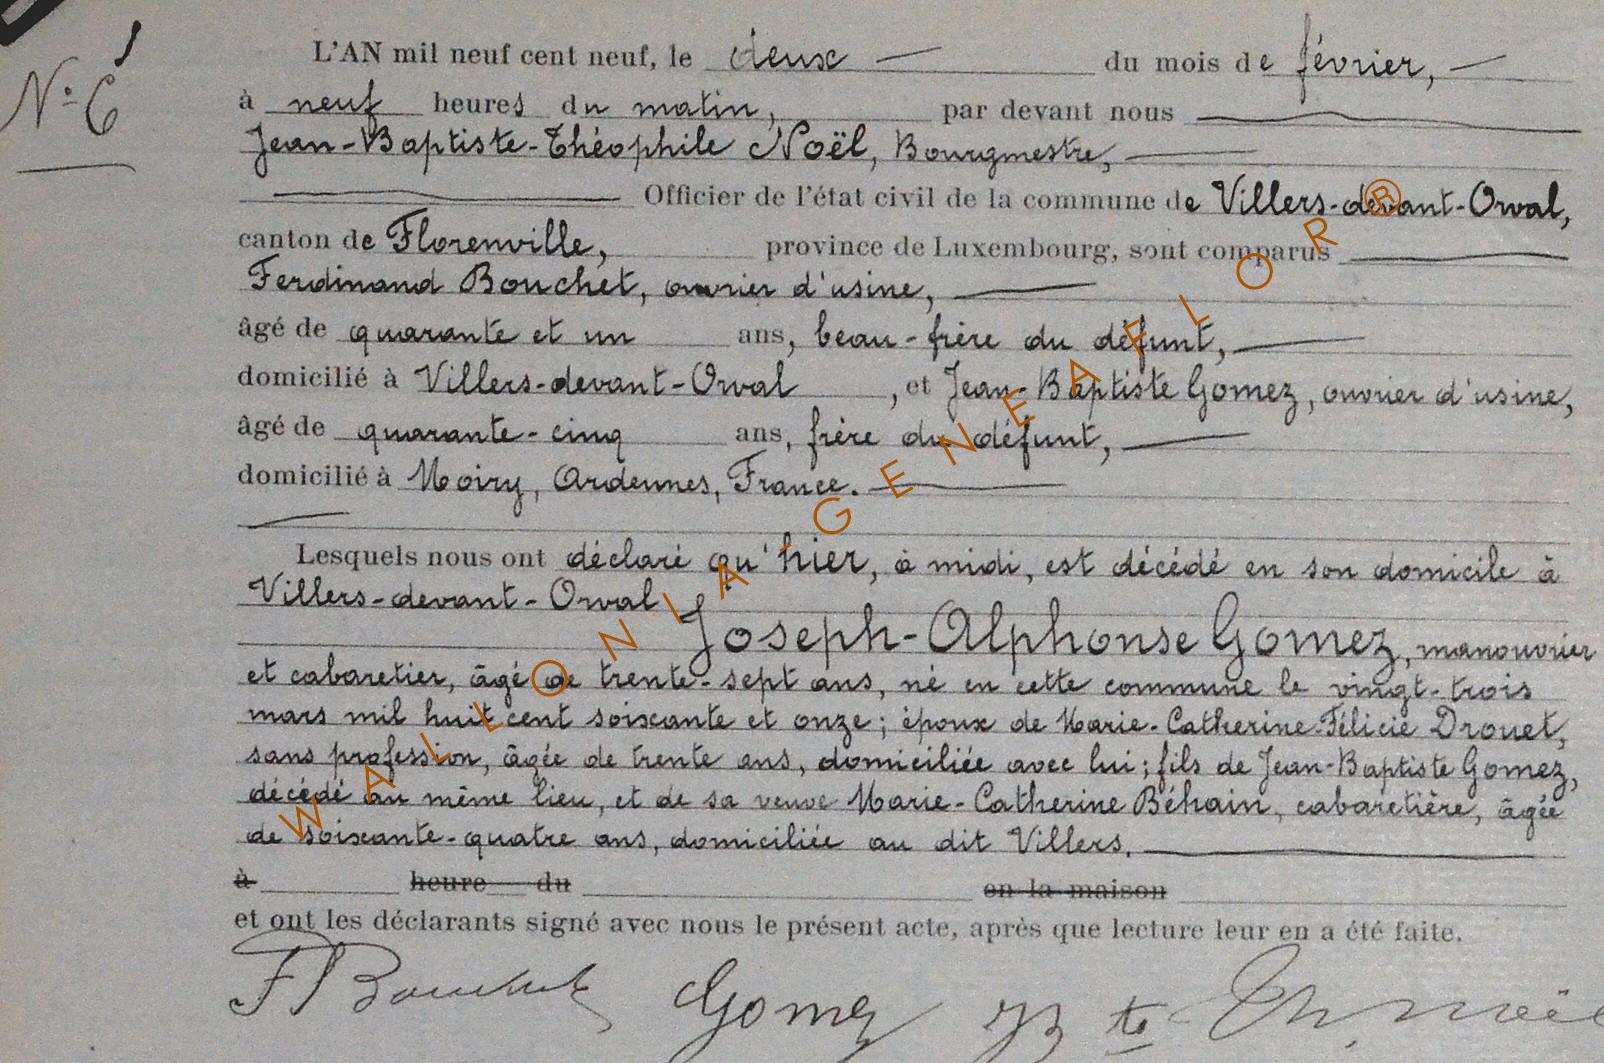 N° 6
L'AN mil neuf cent neuf, le deux — du mois de février, —
à neuf heures du matin, par devant nous
Jean-Baptiste-Théophile Noël, Bourgmestre, —
Officier de l'état civil de la commune de Villers-devant-Orval,
canton de Florenville, province de Luxembourg, sont comparus
Ferdinand Bouchet, ouvrier d'usine, —
âgé de quarante et un ans, beau-frère du défunt, —
domicilié à Villers-devant-Orval, et Jean-Baptiste Gomez, ouvrier d'usine,
âgé de quarante-cinq ans, frère du défunt, —
domicilié à Moiry, Ardennes, France. —
Lesquels nous ont déclaré qu'hier, à midi, est décédé en son domicile à
Villers-devant-Orval
Joseph-Alphonse Gomez, manouvrier
et cabaretier, âgé de trente-sept ans, né en cette commune le vingt-trois
mars mil huit cent soixante et onze; époux de Marie-Catherine-Félicie Drouet,
sans profession, âgée de trente ans, domiciliée avec lui; fils de Jean-Baptiste Gomez,
décédé au même lieu, et de sa veuve Marie-Catherine Béhain, cabaretière, âgée
de soixante-quatre ans, domiciliée au dit Villers. —
à heure du en la maison
et ont les déclarants signé avec nous le présent acte, après que lecture leur en a été faite.
F Bouchet Gomez JBte Th. Noël
WALLONIA-GENEAFLOR®